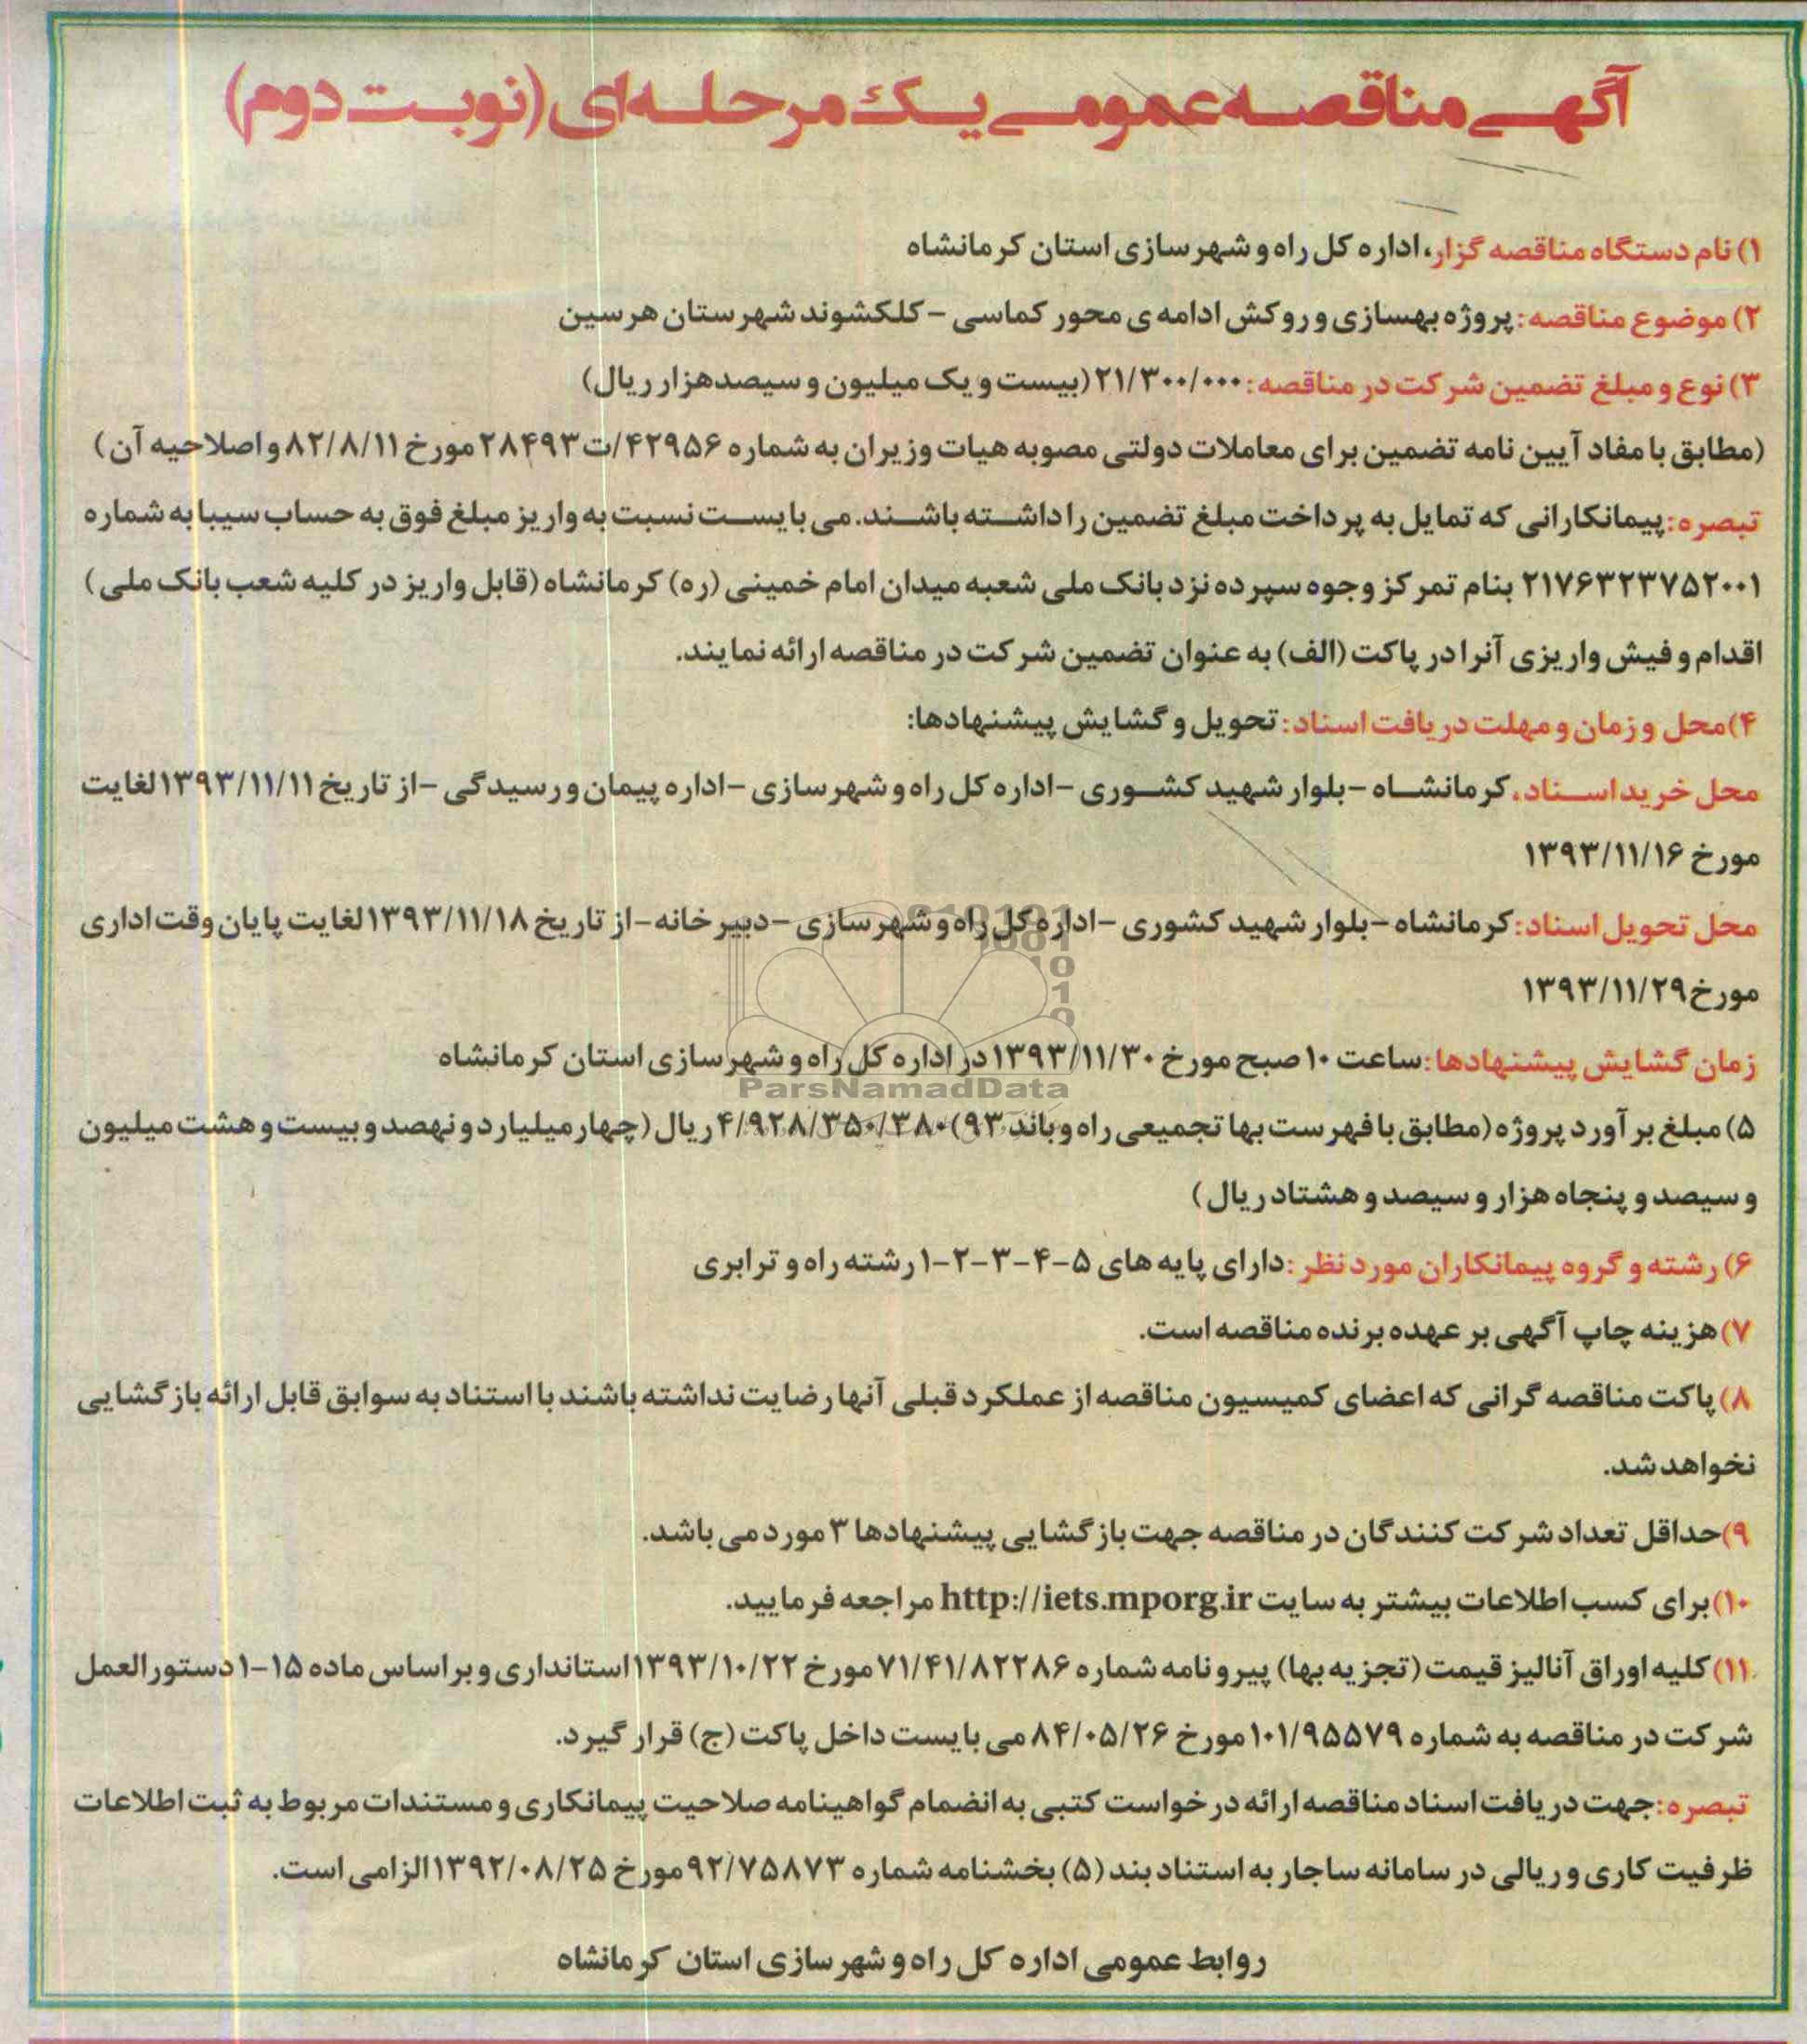 آگهی مناقصه عمومی یک مرحله‌ای (نوبت دوم)
۱) نام دستگاه مناقصه گزار، اداره کل راه و شهرسازی استان کرمانشاه
۲) موضوع مناقصه: پروژه بهسازی و روکش ادامه ی محور کماسی – کلکشوند شهرستان هرسین
۳) نوع و مبلغ تضمین شرکت در مناقصه: ۲۱/۳۰۰/۰۰۰ (بیست و یک میلیون و سیصد هزار ریال)
(مطابق با مفاد آیین نامه تضمین برای معاملات دولتی مصوبه هیات وزیران به شماره ۴۲۹۵۶/ت۲۸۴۹۳ مورخ ۸۲/۸/۱۱ و اصلاحیه آن)
تبصره: پیمانکارانی که تمایل به پرداخت مبلغ تضمین را داشته باشند. می بایست نسبت به واریز مبلغ فوق به حساب سیبا به شماره
۲۱۷۶۳۲۳۷۵۲۰۰۱ بنام تمرکز وجوه سپرده نزد بانک ملی شعبه میدان امام خمینی (ره) کرمانشاه (قابل واریز در کلیه شعب بانک ملی)
اقدام و فیش واریزی آنرا در پاکت (الف) به عنوان تضمین شرکت در مناقصه ارائه نمایند.
۴) محل و زمان و مهلت دریافت اسناد: تحویل و گشایش پیشنهادها:
محل خرید اسناد، کرمانشاه – بلوار شهید کشوری – اداره کل راه و شهرسازی – اداره پیمان و رسیدگی – از تاریخ ۱۳۹۳/۱۱/۱۱ لغایت
مورخ ۱۳۹۳/۱۱/۱۶
محل تحویل اسناد: کرمانشاه – بلوار شهید کشوری – اداره کل راه و شهرسازی – دبیرخانه – از تاریخ ۱۳۹۳/۱۱/۱۸ لغایت پایان وقت اداری
مورخ ۱۳۹۳/۱۱/۲۹
زمان گشایش پیشنهادها: ساعت ۱۰ صبح مورخ ۱۳۹۳/۱۱/۳۰ در اداره کل راه و شهرسازی استان کرمانشاه
ParsNamadData
۵) مبلغ برآورد پروژه (مطابق با فهرست بها تجمیعی راه و باند ۹۳) ۴/۹۲۸/۳۵۰/۳۸۰ ریال (چهار میلیارد و نهصد و بیست و هشت میلیون
و سیصد و پنجاه هزار و سیصد و هشتاد ریال)
۶) رشته و گروه پیمانکاران مورد نظر: دارای پایه های ۵-۴-۳-۲-۱ رشته راه و ترابری
۷) هزینه چاپ آگهی بر عهده برنده مناقصه است.
۸) پاکت مناقصه گرانی که اعضای کمیسیون مناقصه از عملکرد قبلی آنها رضایت نداشته باشند با استناد به سوابق قابل ارائه بازگشایی
نخواهد شد.
۹) حداقل تعداد شرکت کنندگان در مناقصه جهت بازگشایی پیشنهادها ۳ مورد می باشد.
۱۰) برای کسب اطلاعات بیشتر به سایت http://iets.mporg.ir مراجعه فرمایید.
۱۱) کلیه اوراق آنالیز قیمت (تجزیه بها) پیرو نامه شماره ۷۱/۴۱/۸۲۲۸۶ مورخ ۱۳۹۳/۱۰/۲۲ استانداری و بر اساس ماده ۱۵-۱ دستورالعمل
شرکت در مناقصه به شماره ۱۰۱/۹۵۵۷۹ مورخ ۸۴/۰۵/۲۶ می بایست داخل پاکت (ج) قرار گیرد.
تبصره: جهت دریافت اسناد مناقصه ارائه درخواست کتبی به انضمام گواهینامه صلاحیت پیمانکاری و مستندات مربوط به ثبت اطلاعات
ظرفیت کاری و ریالی در سامانه ساجار به استناد بند (۵) بخشنامه شماره ۹۲/۷۵۸۷۳ مورخ ۱۳۹۲/۰۸/۲۵ الزامی است.
روابط عمومی اداره کل راه و شهرسازی استان کرمانشاه